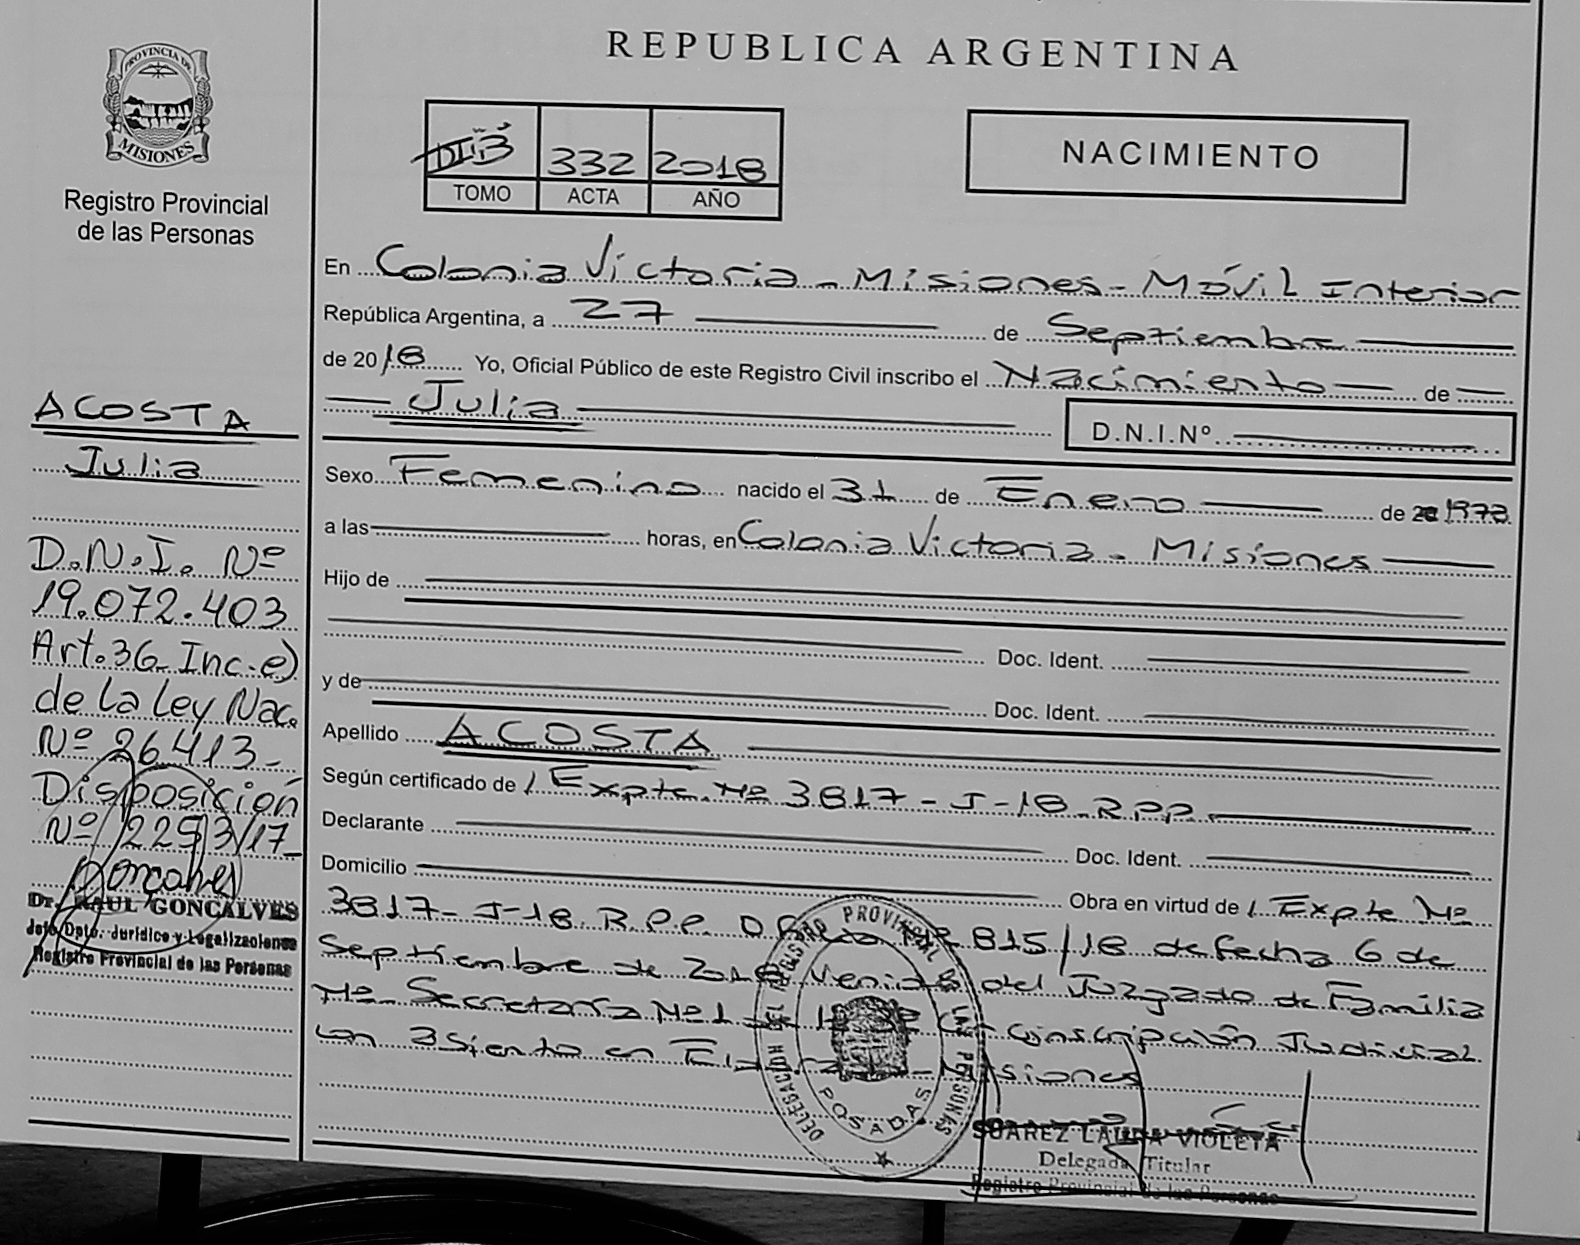 PROVINCIA DE
MISIONES
Registro Provincial
de las Personas
ACOSTA
Julia
D.N.I. Nº
19.072.403
Art. 36 Inc. e)
de la Ley Nac.
Nº 26.413-
Disposición
Nº 2293/17
Goncalves
Dr. RAUL GONCALVES
Jefe Dpto. Jurídico y Legalizaciones
Registro Provincial de las Personas
REPUBLICA ARGENTINA
332 2018
TOMO ACTA AÑO
NACIMIENTO
En Colonia Victoria - Misiones - Móvil Interior
República Argentina, a 27 de Septiembre
de 2018 Yo, Oficial Público de este Registro Civil inscribo el Nacimiento de
Julia
D.N.I.Nº
Sexo Femenino nacido el 31 de Enero de 1973
a las horas, en Colonia Victoria - Misiones
Hijo de
Doc. Ident.
y de
Doc. Ident.
Apellido ACOSTA
Según certificado de / Expte. Nº 3817 - J - 18 - R.P.P.
Declarante Doc. Ident.
Domicilio
Obra en virtud de / Expte Nº
3817 - J - 18. R.P.P. Oficio Nº 815/18 de fecha 6 de
Septiembre de 2018 venido del Juzgado de Familia
Nº Secretaría Nº 1 Circunscripción Judicial
con asiento en Misiones
DELEGACION REGISTRO PROVINCIAL DE LAS PERSONAS
POSADAS
SUAREZ LAURA VIOLETA
Delegada Titular
Registro Provincial de las Personas